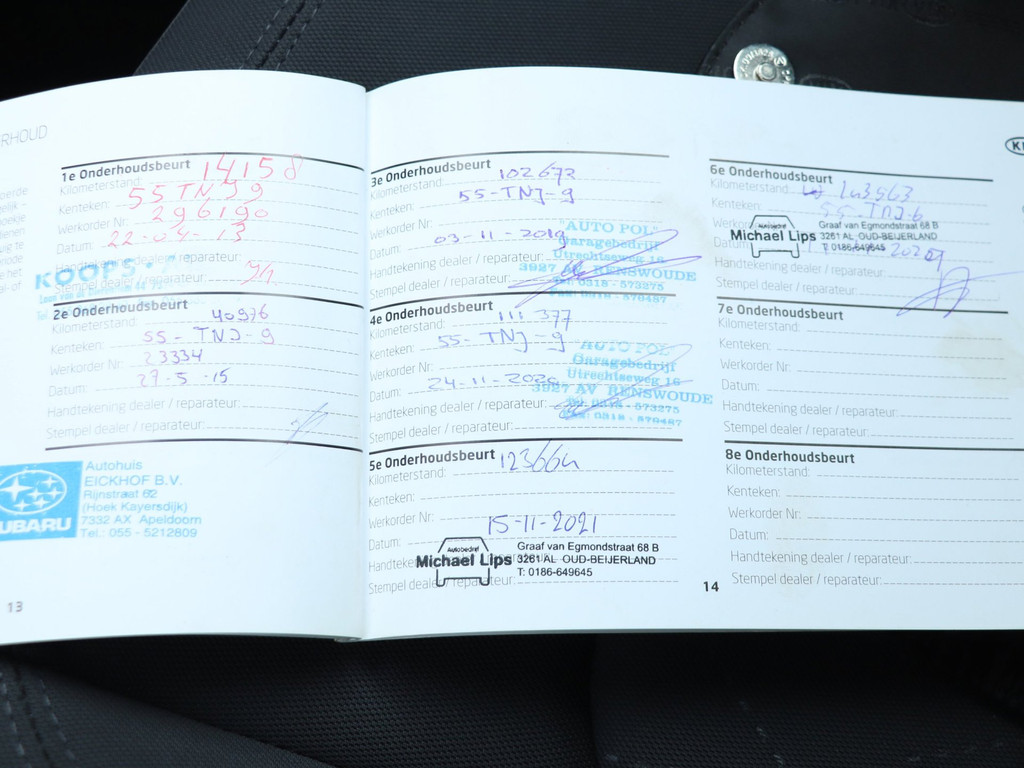 1e Onderhoudsbeurt 14158
Kilometerstand:
Kenteken: 55 TNJ 9
Werkorder Nr: 296190
Datum: 22-04-13
Handtekening dealer / reparateur:
Stempel dealer / reparateur:
KOOPS
2e Onderhoudsbeurt
Kilometerstand: 40976
Kenteken: 55 - TNJ - 9
Werkorder Nr: 23334
Datum: 27-5-15
Handtekening dealer / reparateur:
Stempel dealer / reparateur:
UBARU
Autohuis
EICKHOF B.V.
Rijnstraat 62
(Hoek Kayersdijk)
7332 AX Apeldoorn
Tel.: 055 - 5212809
13
3e Onderhoudsbeurt
Kilometerstand: 102672
Kenteken: 55-TNJ-9
Werkorder Nr:
Datum: 03-11-2019
Handtekening dealer / reparateur:
Stempel dealer / reparateur:
"AUTO POL"
Garagebedrijf
Utrechtseweg 16
3927 AV RENSWOUDE
Tel: 0318 - 573275
Fax: 0318 - 570487
4e Onderhoudsbeurt
Kilometerstand: 111 377
Kenteken: 55- TNJ - 9
Werkorder Nr:
Datum: 24-11-2020
Handtekening dealer / reparateur:
Stempel dealer / reparateur:
"AUTO POL"
Garagebedrijf
Utrechtseweg 16
3927 AV RENSWOUDE
Tel: 0318 - 573275
Fax: 0318 - 570487
5e Onderhoudsbeurt
Kilometerstand:
Kenteken:
Werkorder Nr:
Datum: 15-11-2021
Stempel dealer / reparateur:
Autobedrijf
Michael Lips
Graaf van Egmondstraat 68 B
3261 AL OUD-BEIJERLAND
T: 0186-649645
14
6e Onderhoudsbeurt
Kilometerstand
Kenteken:
Handtekening dealer / reparateur:
Stempel dealer / reparateur:
Autobedrijf
Michael Lips
Graaf van Egmondstraat 68 B
3261 AL OUD-BEIJERLAND
T: 0186-649645
7e Onderhoudsbeurt
Kilometerstand:
Kenteken:
Werkorder Nr:
Datum:
Handtekening dealer / reparateur:
Stempel dealer / reparateur:
8e Onderhoudsbeurt
Kilometerstand:
Kenteken:
Werkorder Nr:
Datum:
Handtekening dealer / reparateur:
Stempel dealer / reparateur: